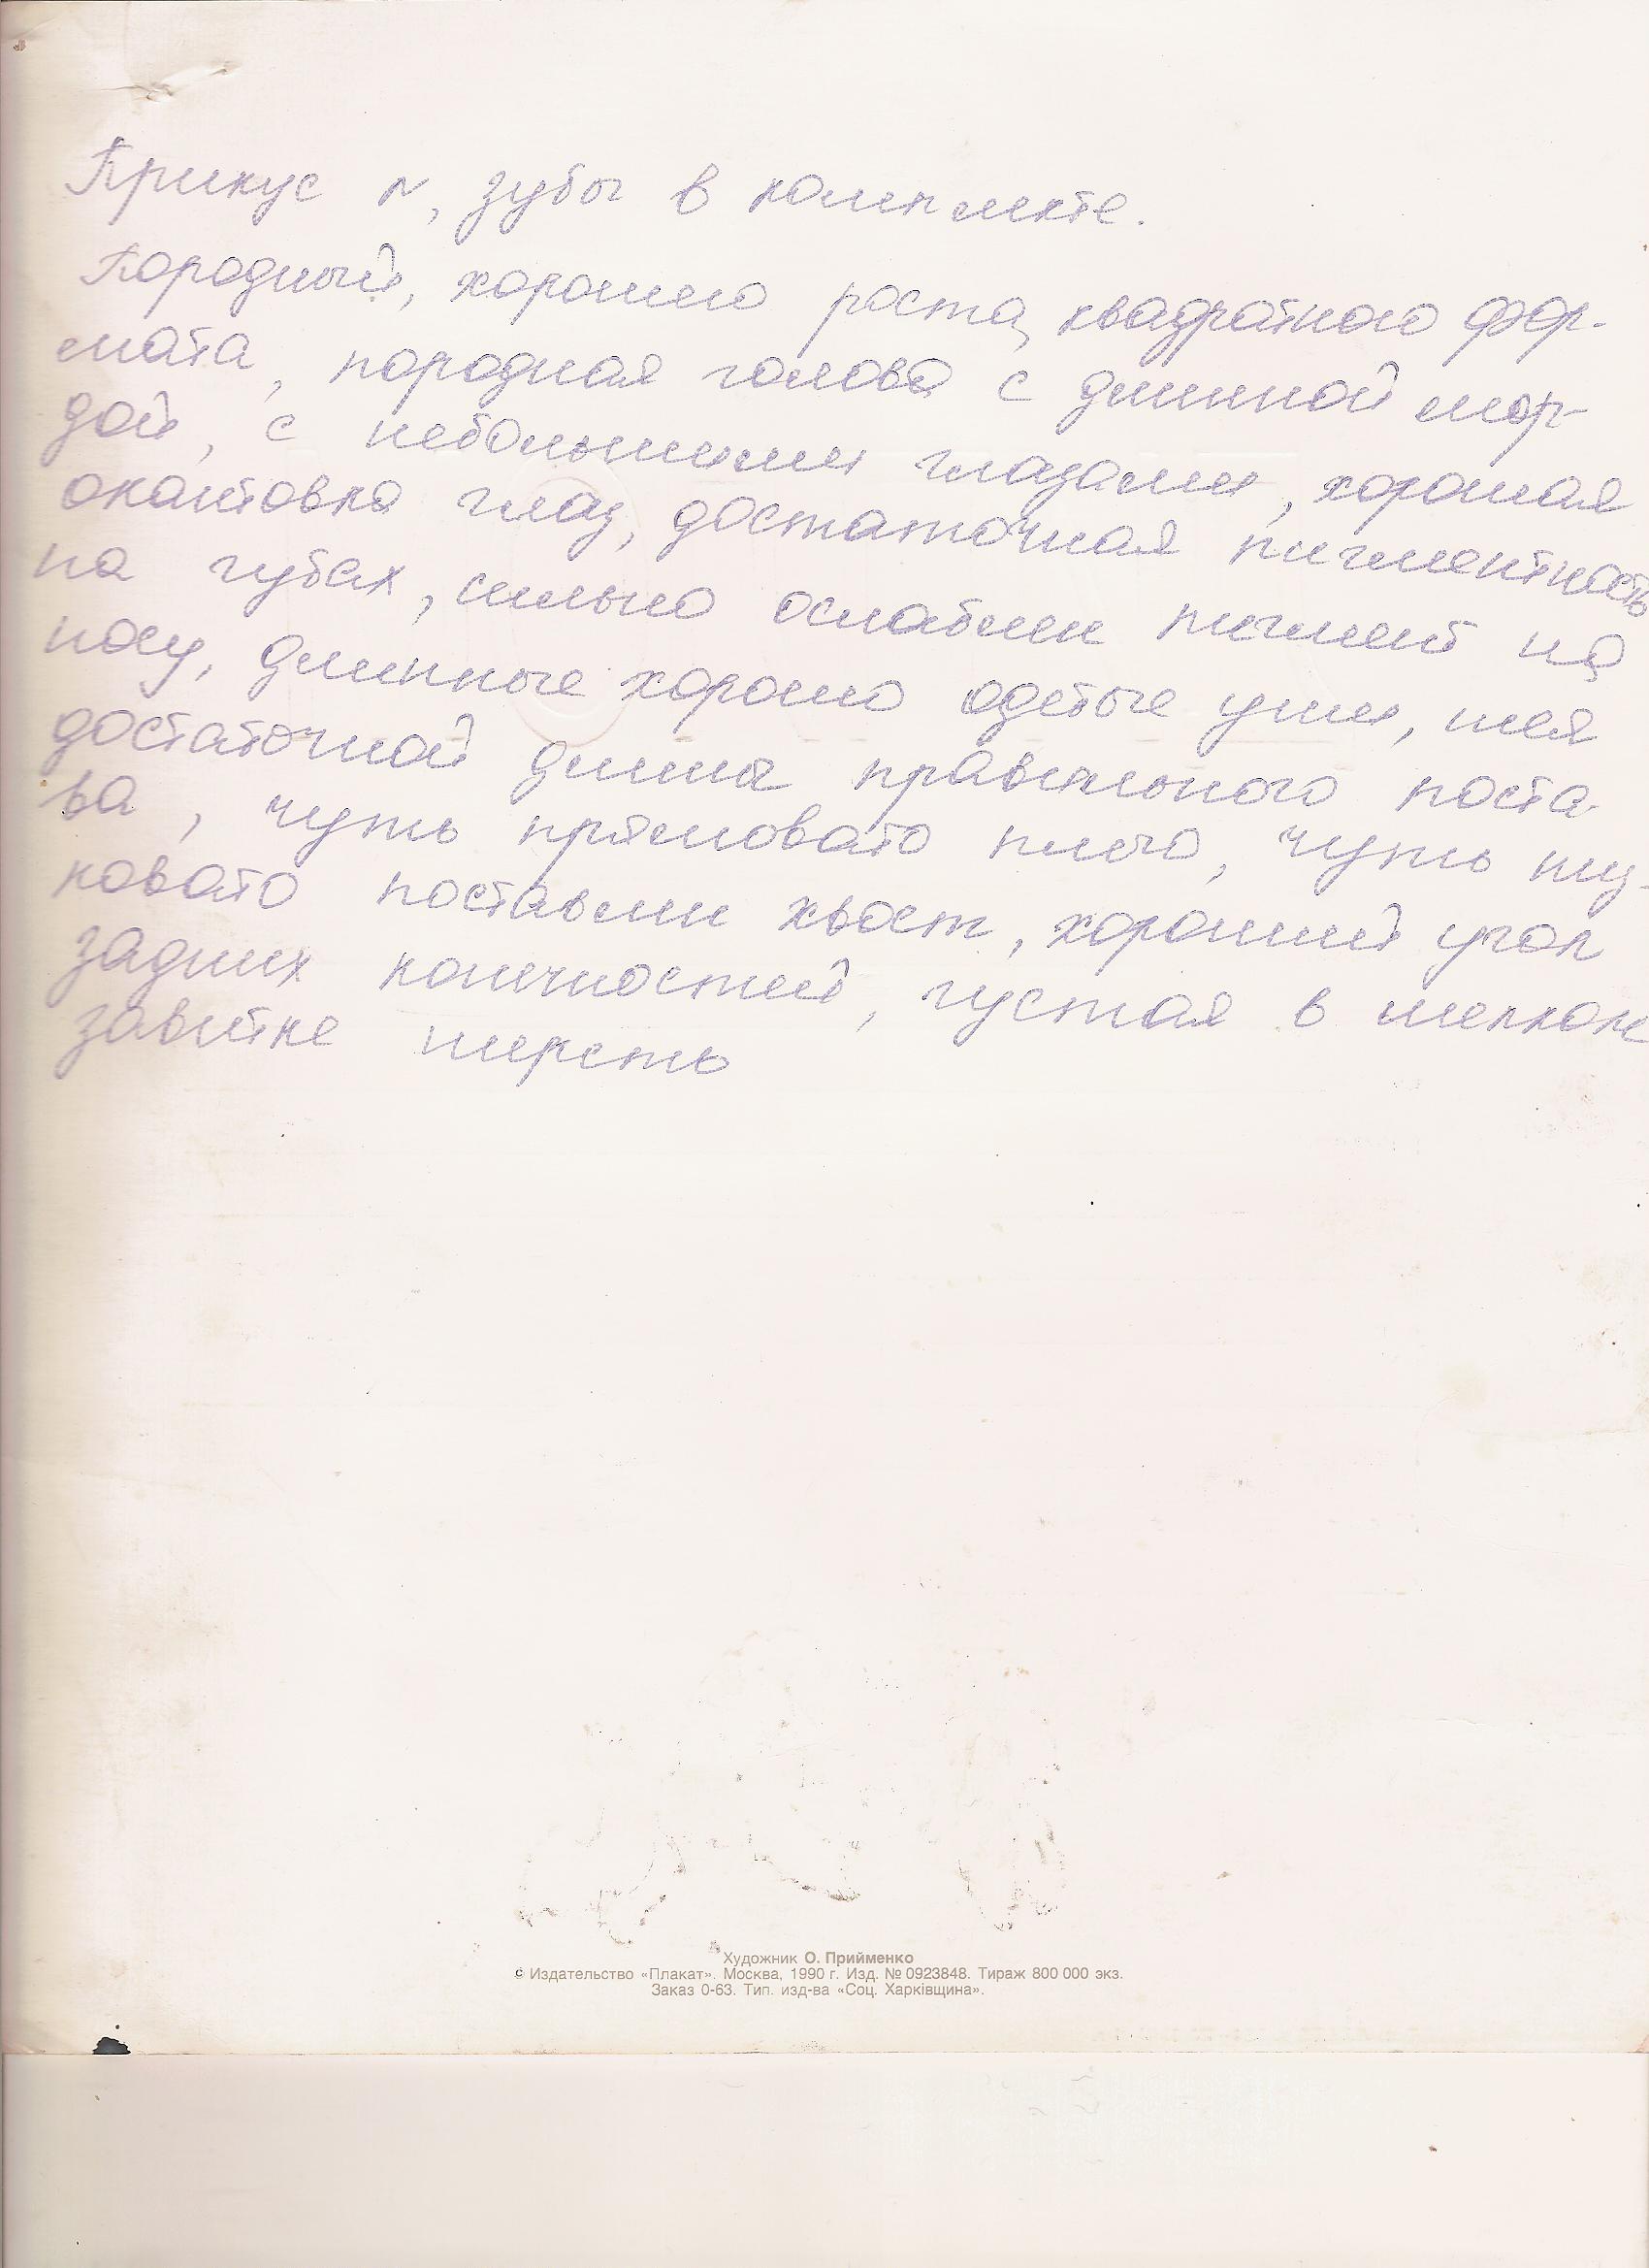 Прикус N, зубы в комплекте.
Породный, хорошего роста, квадратного фор-
мата, породная голова с длинной мор-
дой, с небольшими глазами, хорошая
окантовка глаз, достаточная пигментность
на губах, сильно ослаблен пигмент на
носу, длинные хорошо одетые уши, шея
достаточной длины правильного поста-
ва, чуть прямовато плечо, чуть низ-
ковато поставлен хвост, хороший угол
задних конечностей, густая в мелком
завитке шерсть
Художник О. Прийменко
© Издательство «Плакат». Москва, 1990 г. Изд. № 0923848. Тираж 800 000 экз.
Заказ 0-63. Тип. изд-ва «Соц. Харкiвщина».